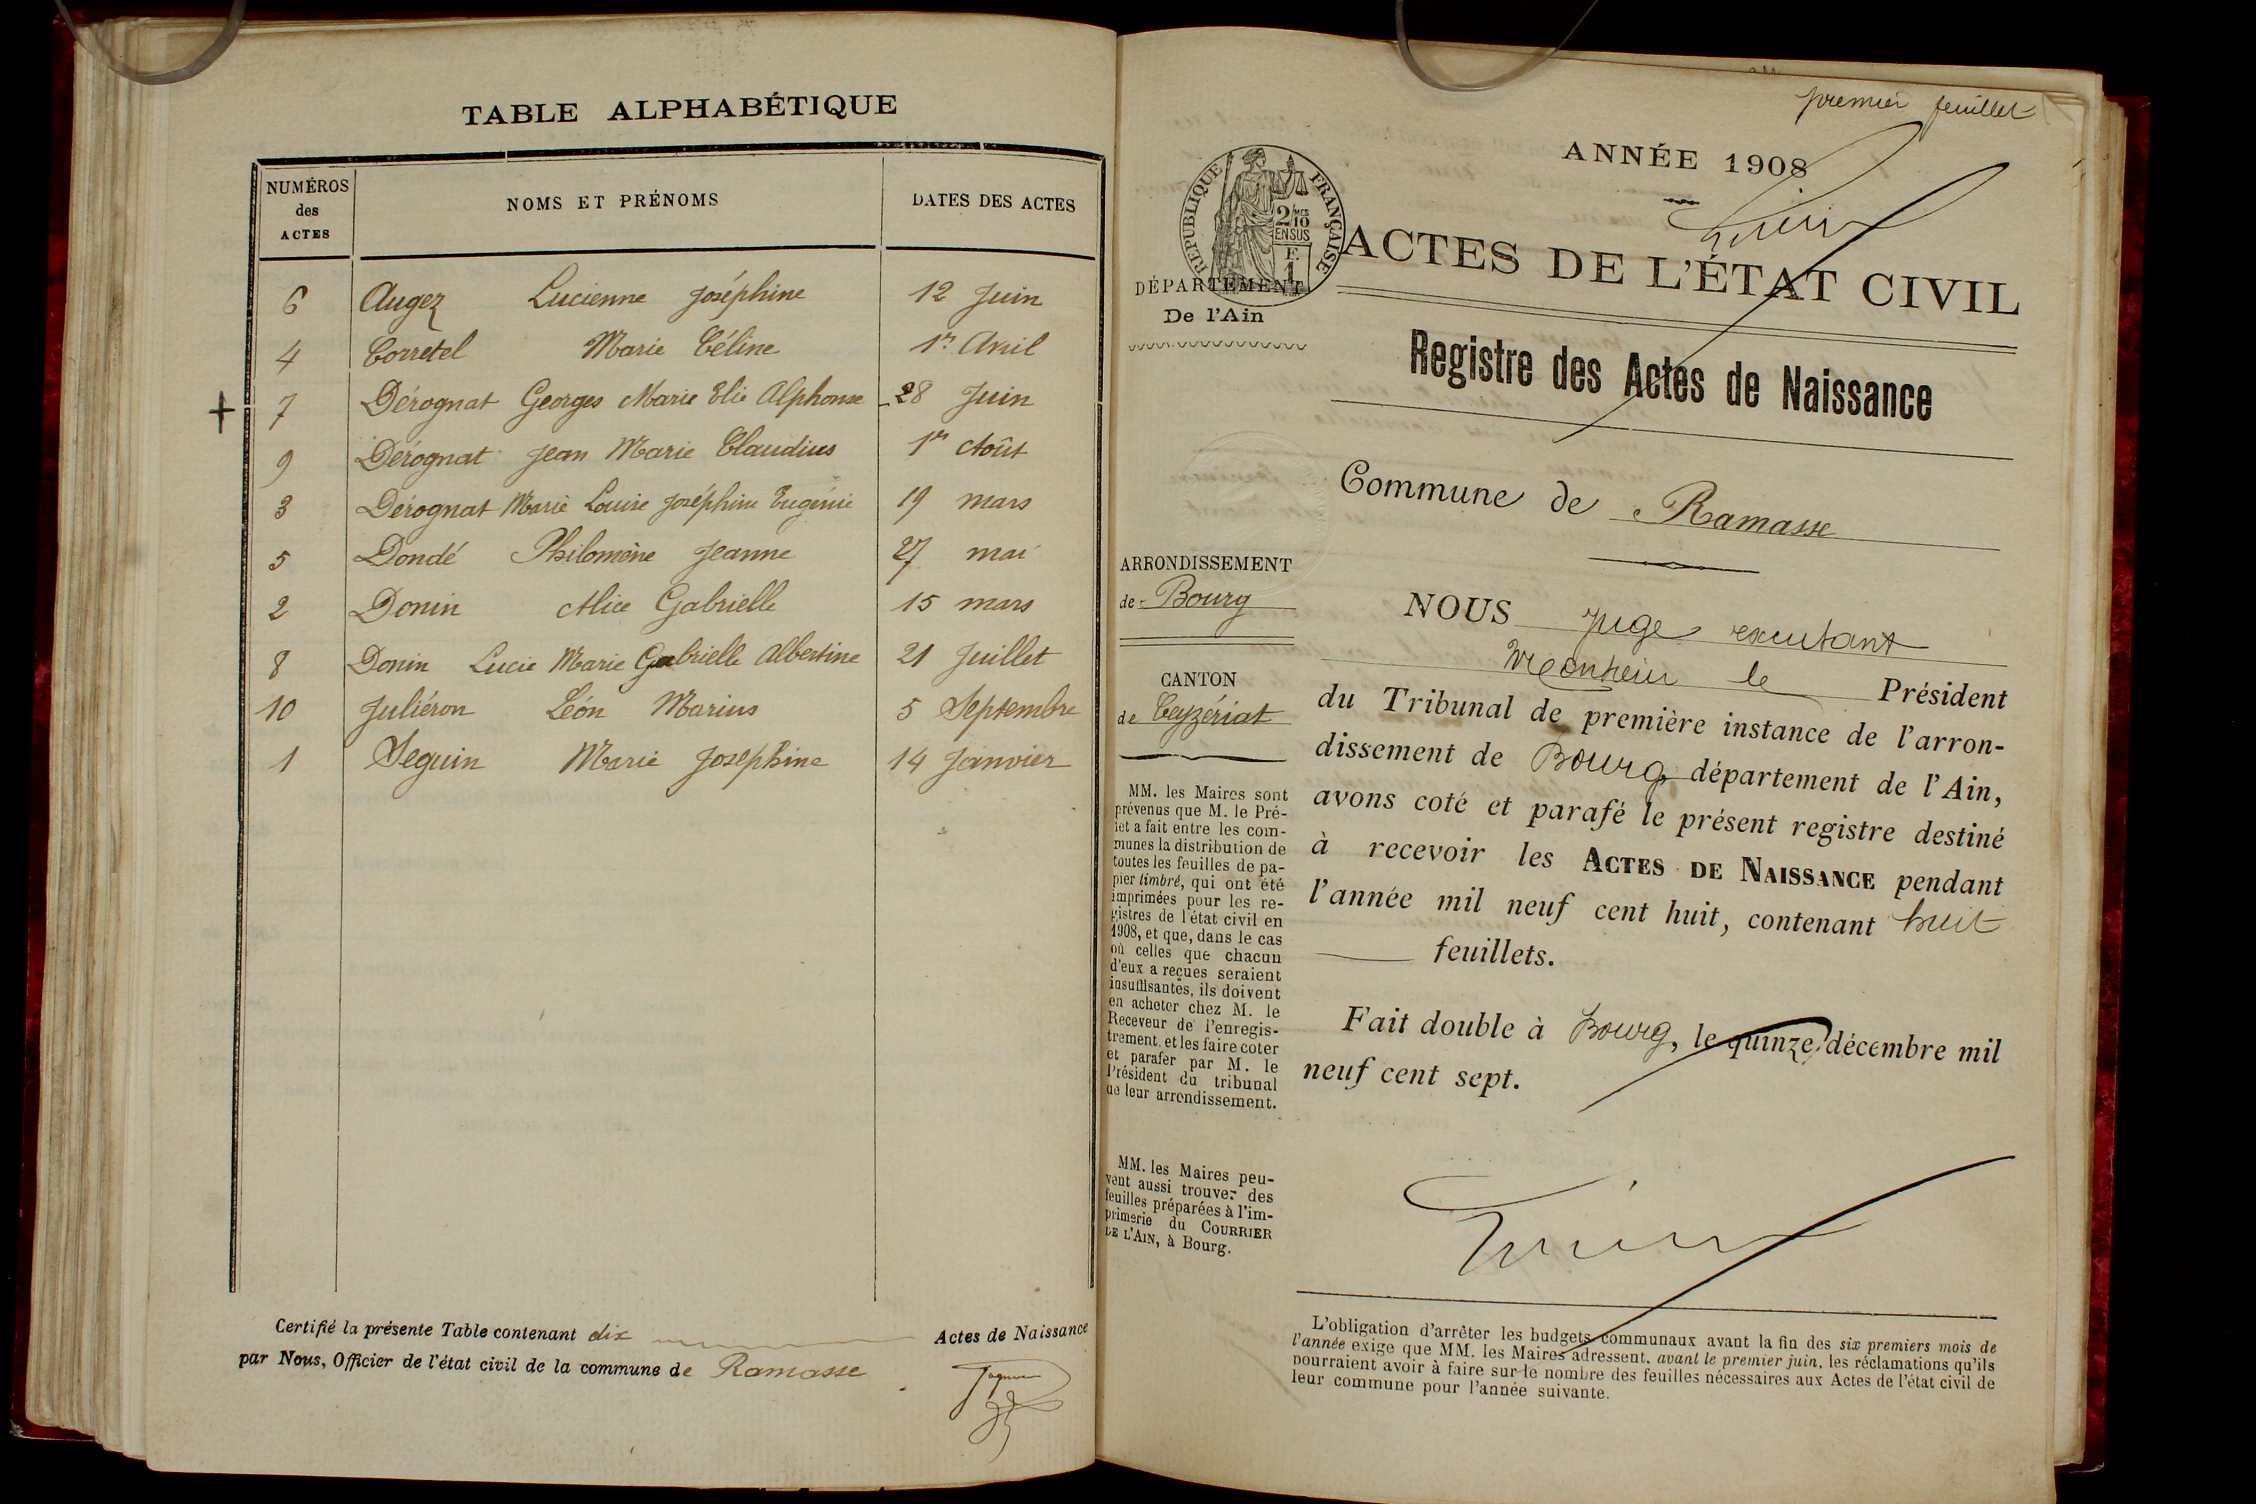 TABLE ALPHABÉTIQUE
NUMÉROS des ACTES
NOMS ET PRÉNOMS
DATES DES ACTES
6 Augez Lucienne Joséphine 12 Juin
4 Corretel Marie Céline 1er Avril
+ 7 Dérognat Georges Marie Elie Alphonse 28 Juin
9 Dérognat Jean Marie Claudius 1er Août
3 Dérognat Marie Louise Joséphine Eugénie 19 mars
5 Dondé Philomène Jeanne 27 mai
2 Donin Alice Gabrielle 15 mars
8 Donin Lucie Marie Gabrielle Albertine 21 Juillet
10 Juliéron Léon Marius 5 Septembre
1 Seguin Marie Joséphine 14 Janvier
Certifié la présente Table contenant dix Actes de Naissance
par Nous, Officier de l'état civil de la commune de Ramasse
premier feuillet
ANNÉE 1908
RÉPUBLIQUE FRANÇAISE
2/10
EN SUS
F.
1
ACTES DE L'ÉTAT CIVIL
DÉPARTEMENT
De l'Ain
Registre des Actes de Naissance
Commune de Ramasse
ARRONDISSEMENT
de Bourg
CANTON
de Ceyzériat
MM. les Maires sont
prévenus que M. le Pré-
fet a fait entre les com-
munes la distribution de
toutes les feuilles de pa-
pier timbré, qui ont été
imprimées pour les re-
gistres de l'état civil en
1908, et que, dans le cas
où celles que chacun
d'eux a reçues seraient
insuffisantes, ils doivent
en acheter chez M. le
Receveur de l'enregis-
trement, et les faire coter
et parafer par M. le
Président du tribunal
de leur arrondissement.
MM. les Maires peu-
vent aussi trouver des
feuilles préparées à l'im-
primerie du COURRIER
DE L'AIN, à Bourg.
NOUS Juge
le Président
du Tribunal de première instance de l'arron-
dissement de Bourg, département de l'Ain,
avons coté et parafé le présent registre destiné
à recevoir les ACTES DE NAISSANCE pendant
l'année mil neuf cent huit, contenant huit
feuillets.
Fait double à Bourg, le quinze décembre mil
neuf cent sept.
L'obligation d'arrêter les budgets communaux avant la fin des six premiers mois de
l'année exige que MM. les Maires adressent, avant le premier juin, les réclamations qu'ils
pourraient avoir à faire sur le nombre des feuilles nécessaires aux Actes de l'état civil de
leur commune pour l'année suivante.